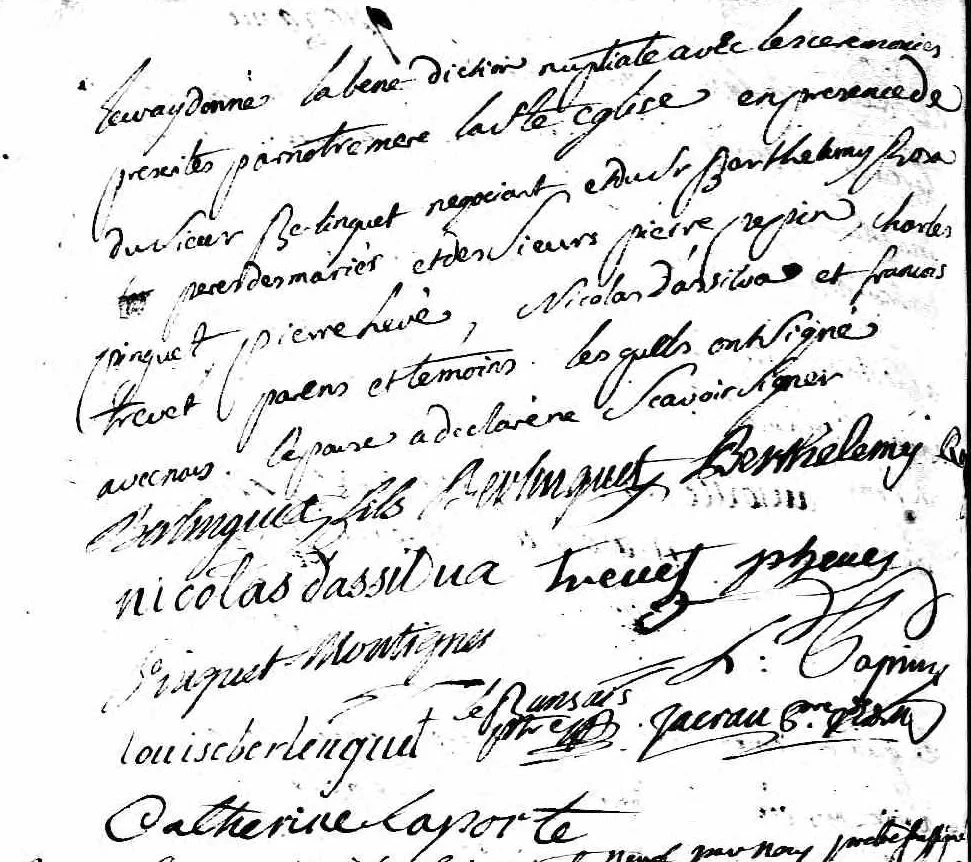 leur ay donné la bene diction nuptiale avec les ceremonies
prescrites par notre mere la Ste eglise en presence de
du Sieur Berlinguet negociant et du Sr Barthelemy Rosa
peres des mariés et des Sieurs pierre papin, charles
pinguet pierre hevé, Nicolas Dassilva et francois
trevet parens et temoins. lesquells ont Signé
avec nous. lepouse a declaré ne Scavoir Signer
Berlinguet fils Berlinguet Berthelemy
nicolas dassilva trevet pheves
Pinguet Montigner
louise berlenguet Jacrau
Catherine Laporte
neuf par nous